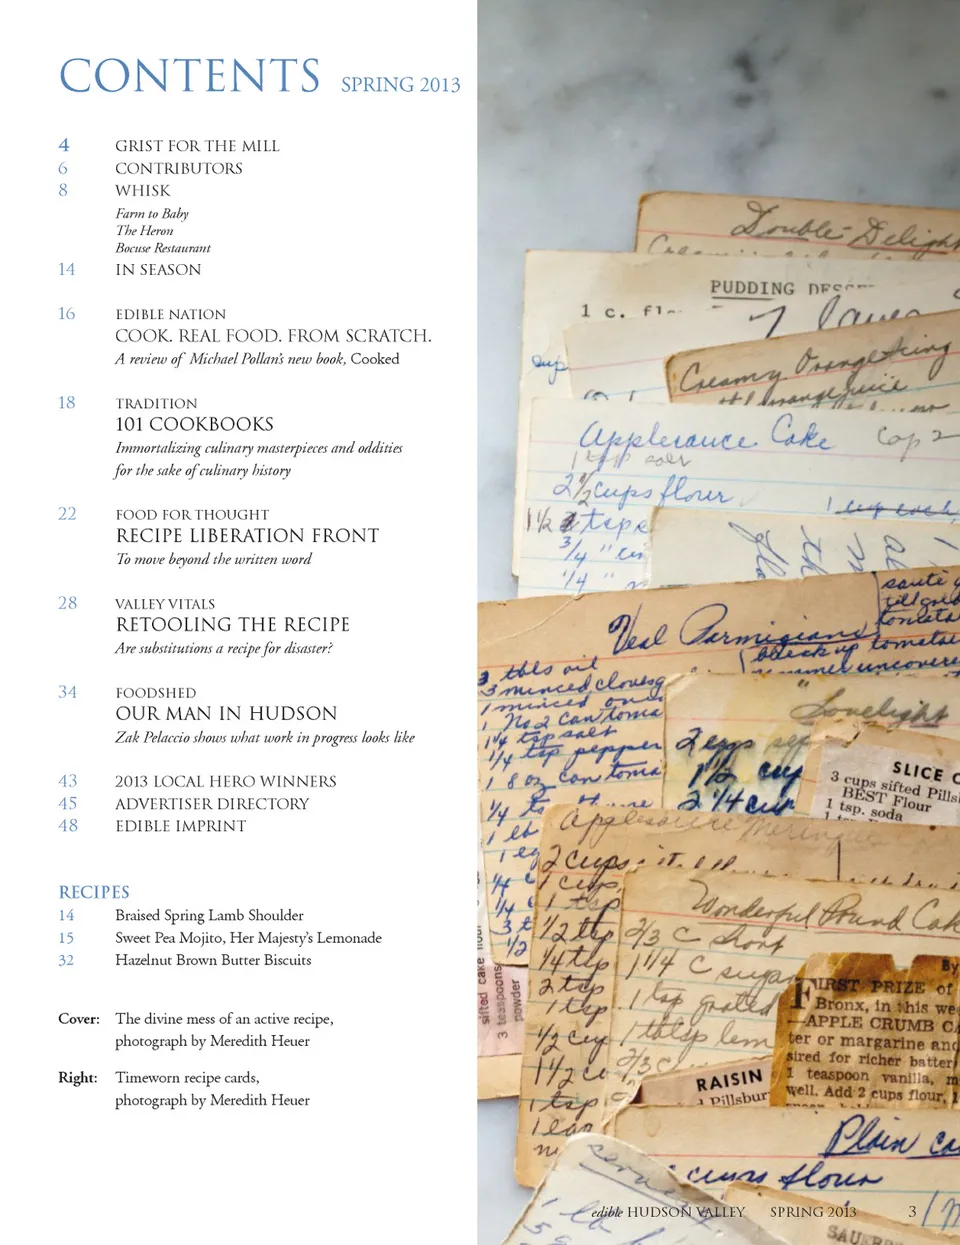 CONTENTS SPRING 2013
4 GRIST FOR THE MILL
6 CONTRIBUTORS
8 WHISK
Farm to Baby
The Heron
Bocuse Restaurant
14 IN SEASON
16 EDIBLE NATION
COOK. REAL FOOD. FROM SCRATCH.
A review of Michael Pollan's new book, Cooked
18 TRADITION
101 COOKBOOKS
Immortalizing culinary masterpieces and oddities
for the sake of culinary history
22 FOOD FOR THOUGHT
RECIPE LIBERATION FRONT
To move beyond the written word
28 VALLEY VITALS
RETOOLING THE RECIPE
Are substitutions a recipe for disaster?
34 FOODSHED
OUR MAN IN HUDSON
Zak Pelaccio shows what work in progress looks like
43 2013 LOCAL HERO WINNERS
45 ADVERTISER DIRECTORY
48 EDIBLE IMPRINT
RECIPES
14 Braised Spring Lamb Shoulder
15 Sweet Pea Mojito, Her Majesty's Lemonade
32 Hazelnut Brown Butter Biscuits
Cover: The divine mess of an active recipe,
photograph by Meredith Heuer
Right: Timeworn recipe cards,
photograph by Meredith Heuer
Double-Delight
PUDDING
1 c.
Creamy Orange Icing
Applesauce Cake
1 tsp salt
2 1/2 cups flour
1 1/2 tsps
3/4 "
1/4 "
Veal Parmigiana
sauté
till gold
tomato
break up tomatoes
simmer uncovered
3 tbls oil
3 minced cloves g
1 minced
1 No 2 can toma
1 1/4 tsp salt
1/4 tsp pepper
1 8 oz can toma
"Lovelight
2 eggs sep
1 1/2 cup
2 1/4 cup
SLICE
3 cups sifted Pills
BEST Flour
1 tsp. soda
Applesauce Meringue
2 cups
1 cup
1 tsp
1/2 tsp
1/4 tsp
2 tsp
1 tsp
Wonderful Pound Cake
2/3 C short
1 1/4 C sugar
1 tsp grated
1 tblsp lem
2/3 C
sifted cake flour
3 teaspoons
powder
By
FIRST PRIZE of
Bronx, in this we
—APPLE CRUMB CA
ter or margarine and
sired for richer batter
1 teaspoon vanilla, m
well. Add 2 cups flour, 1
RAISIN
Pillsbur
Plain ca
cups flour
SAUER
edible HUDSON VALLEY SPRING 2013 3